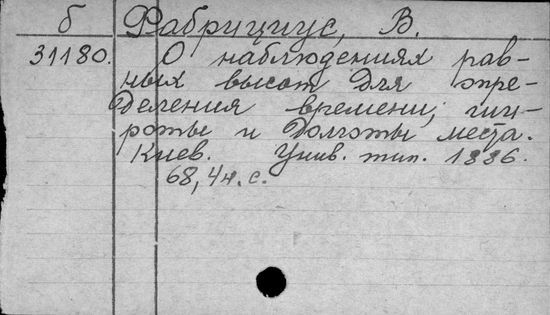 б Фабрициус, В.
31180. О наблюдениях рав-
ных высот для опре-
деления времени, ши-
роты и долготы места.
Киев. Унив. тип. 1886.
68, 4н. с.